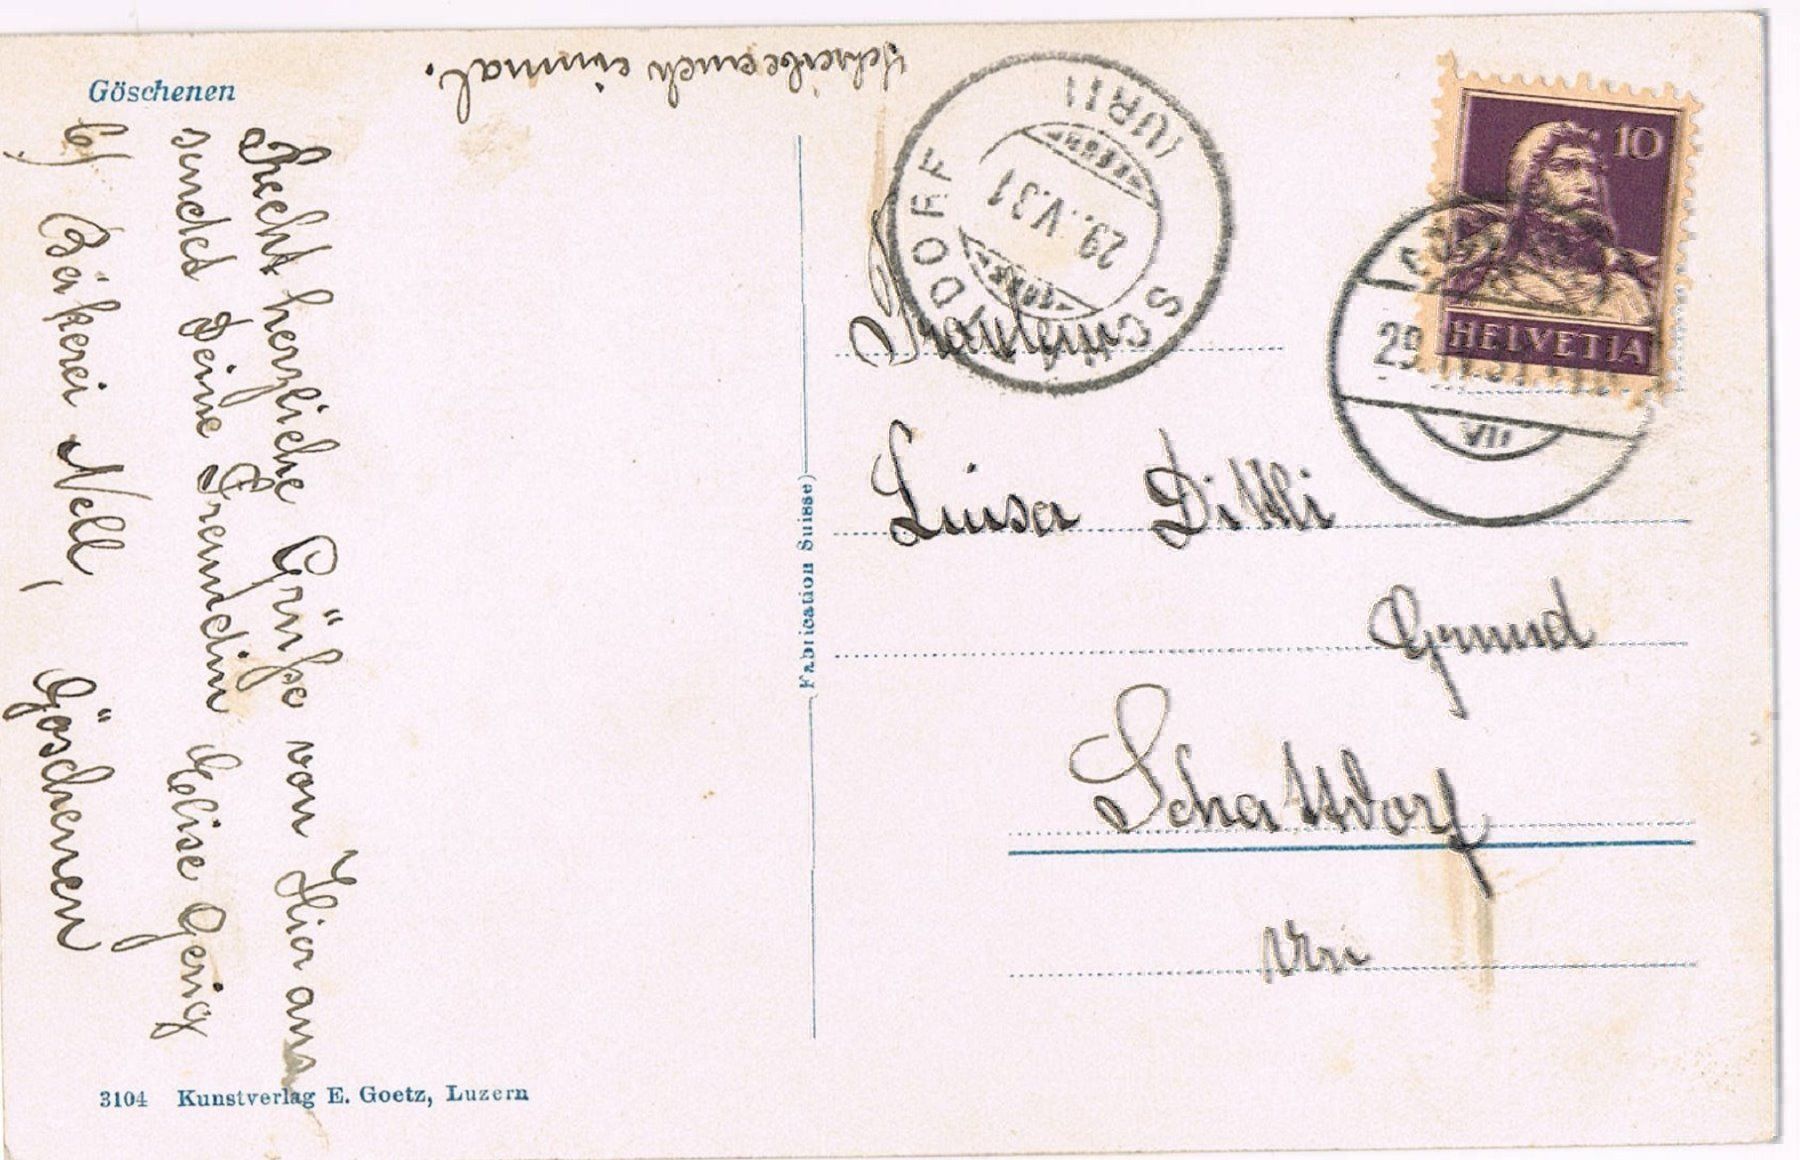 Göschenen
Recht herzliche Grüße von Hier aus
sendet Deine Freundin Elise Gerig
b/ Bäkerei Nell, Göschenen
schreibe auch einmal.
SCHATTDORF (URI)
29.V.31
10
HELVETIA
29
VII
Fräulein
Luisa Dittli
Grund
Schattdorf
Uri
Fabrication Suisse
3104 Kunstverlag E. Goetz, Luzern